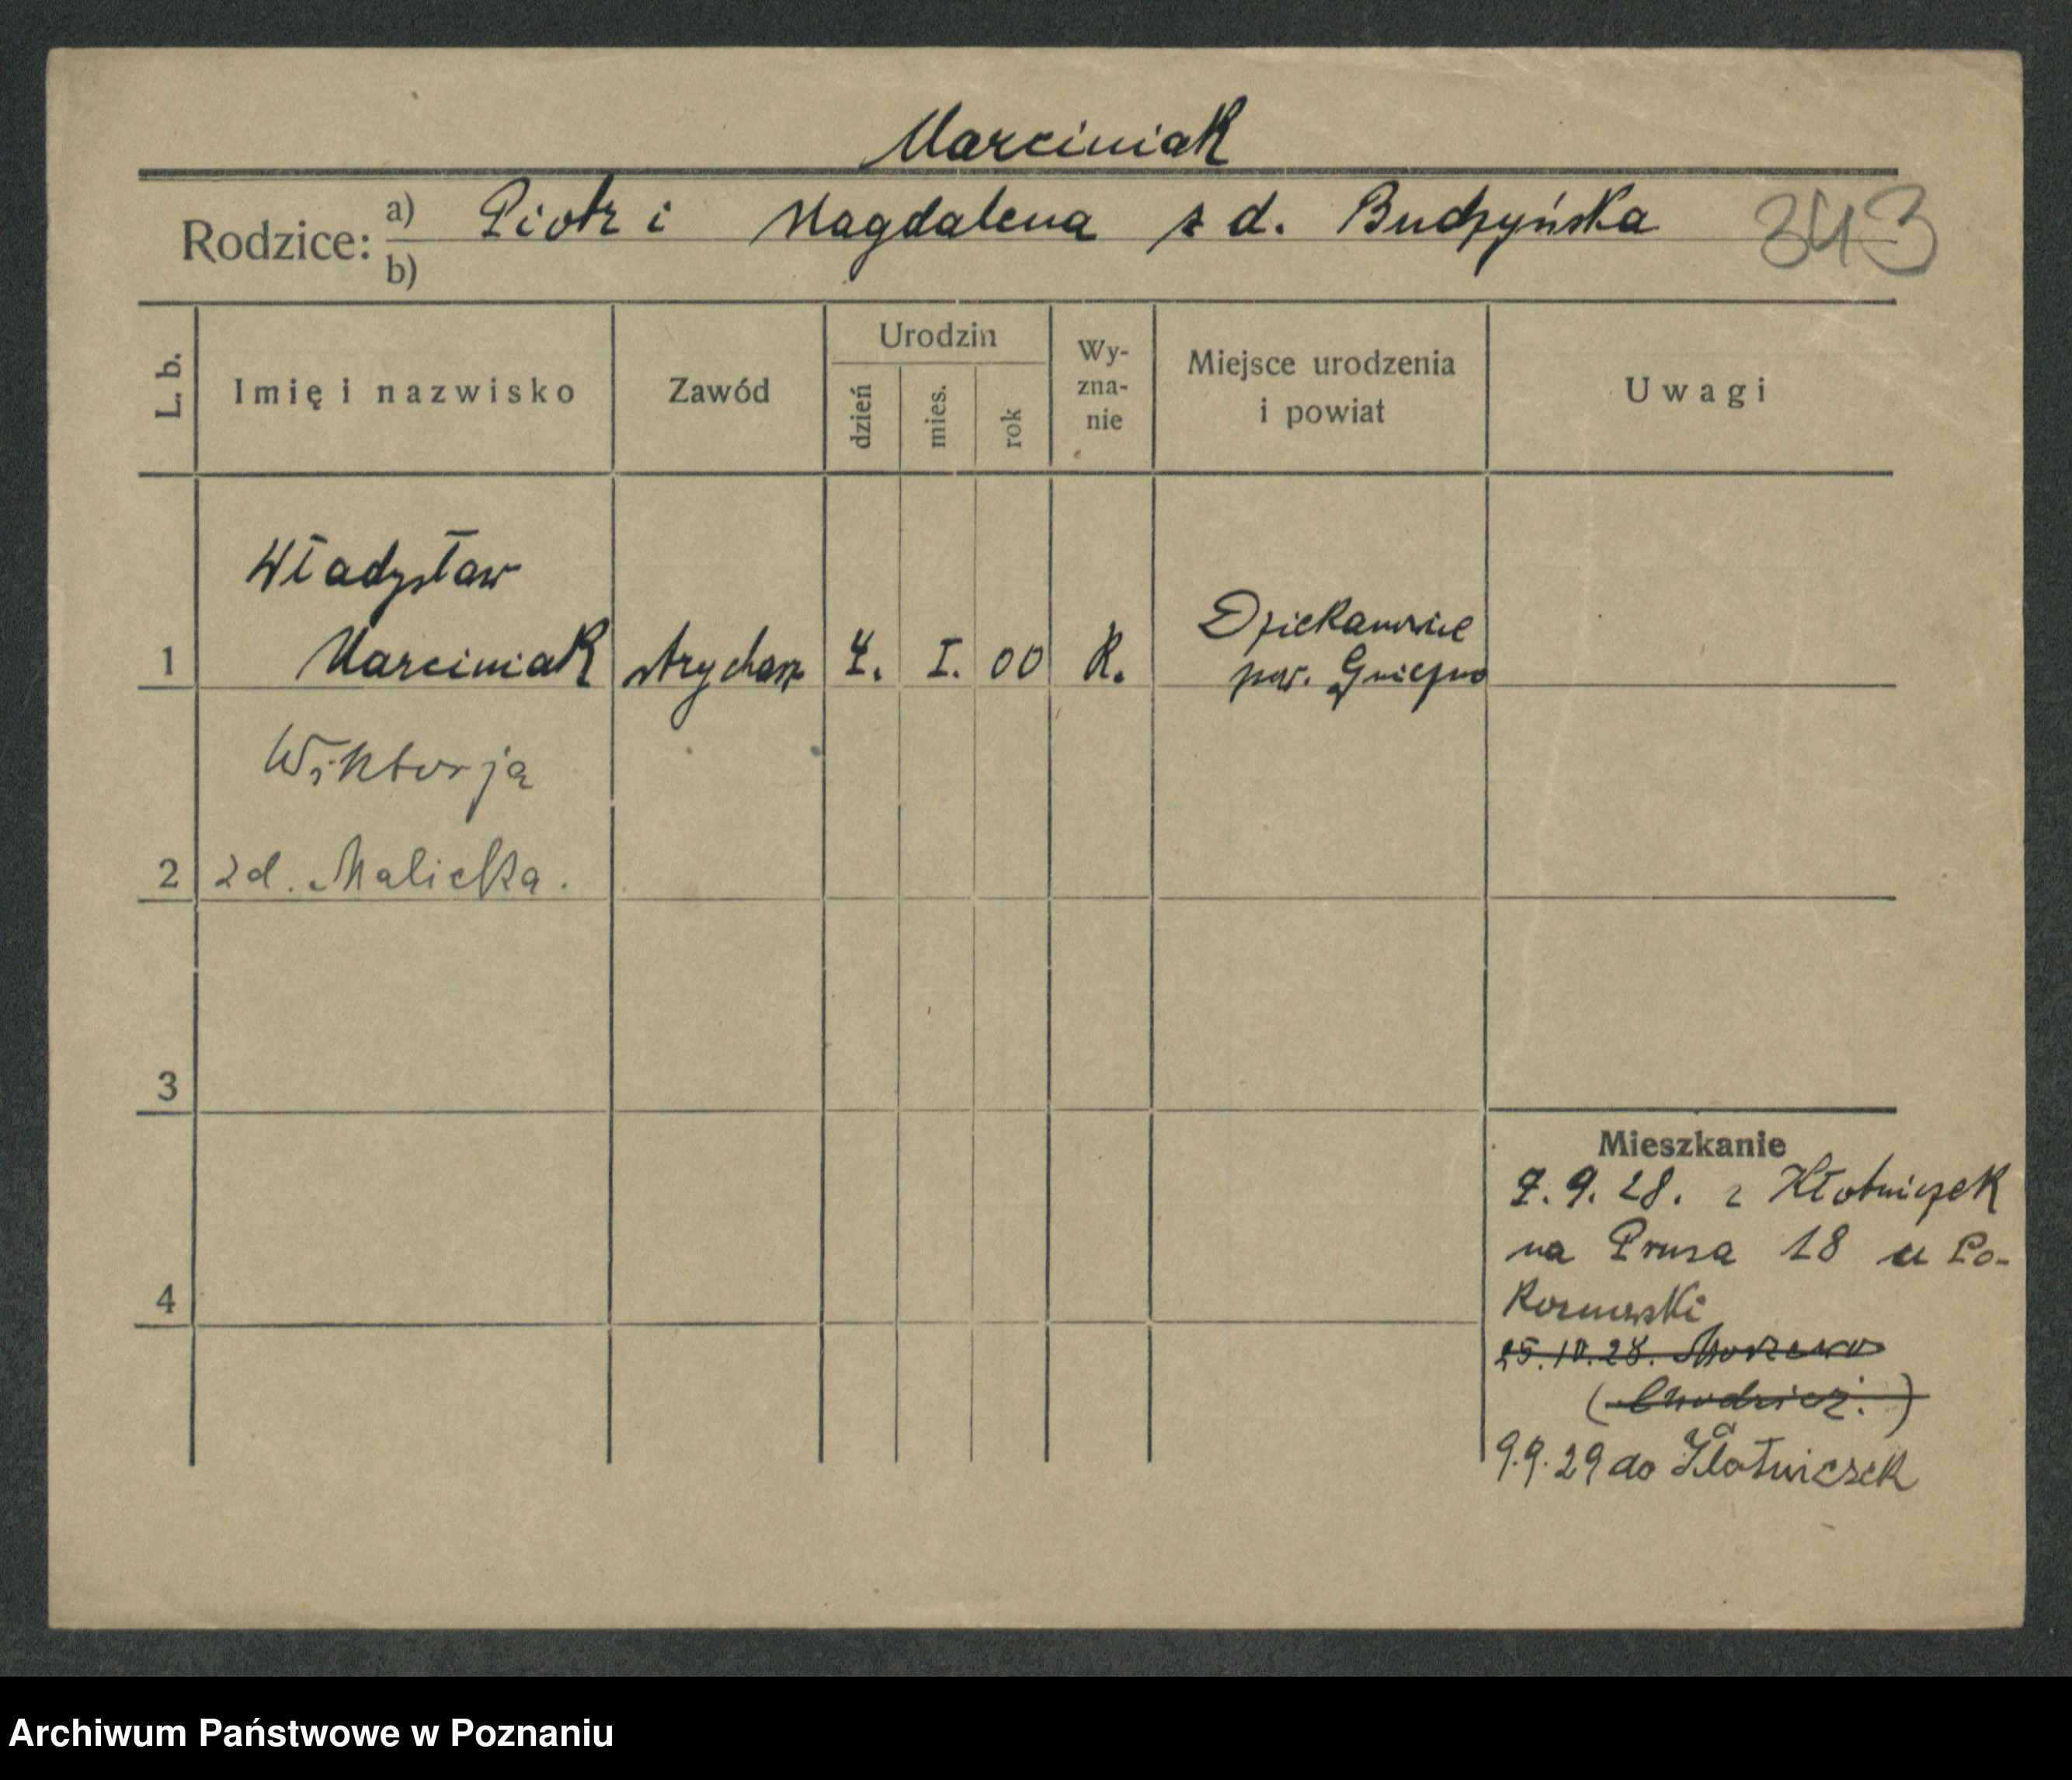 Marciniak
Rodzice: a) Piotr i Magdalena z d. Budzyńska 343
b)
L. b. Imię i nazwisko Zawód Urodzin dzień mies. rok Wy-zna-nie Miejsce urodzenia i powiat Uwagi
Władysław
1 Marciniak strycharz 4. I. 00 R. Dziekanowice
pow. Gniezno
Wiktorja
2 zd. Malicka.
3
Mieszkanie
7. 9. 28. z
na Prusa 18 u Po-
4
25. 10. 28. Morzewo
(Chodzież.)
9.9.29 do
Archiwum Państwowe w Poznaniu